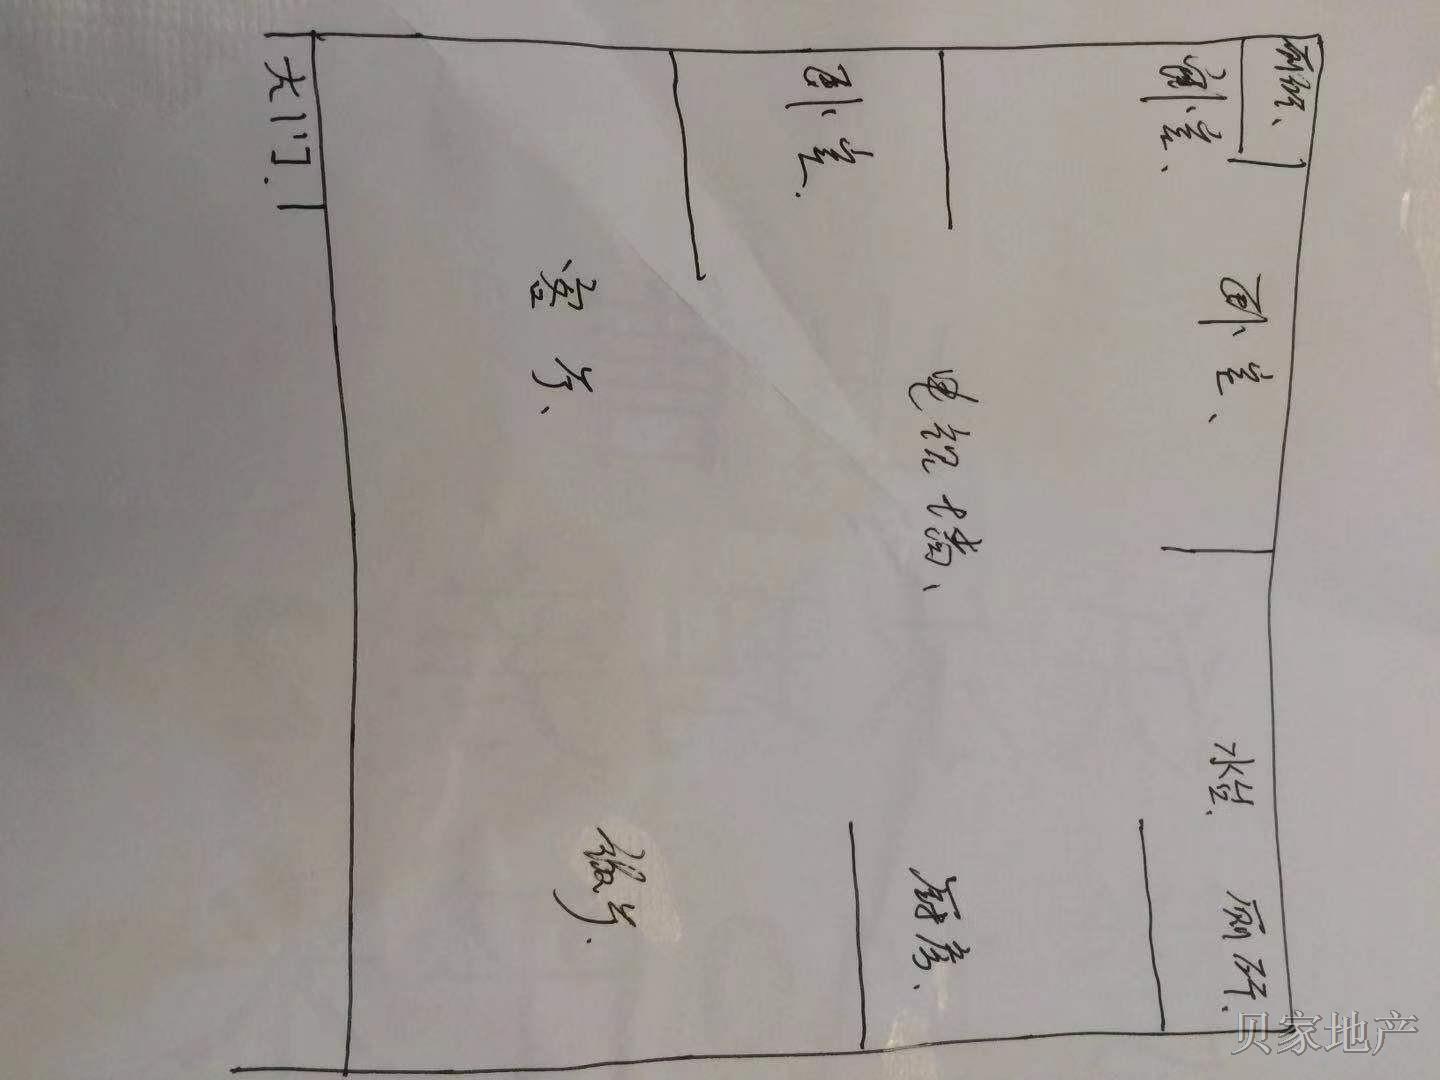 大门.
客厅、
卧室.
卧室、
厕所、
卧室、
电视墙、
餐厅.
厨房、
水台.
厕所.
贝家地产